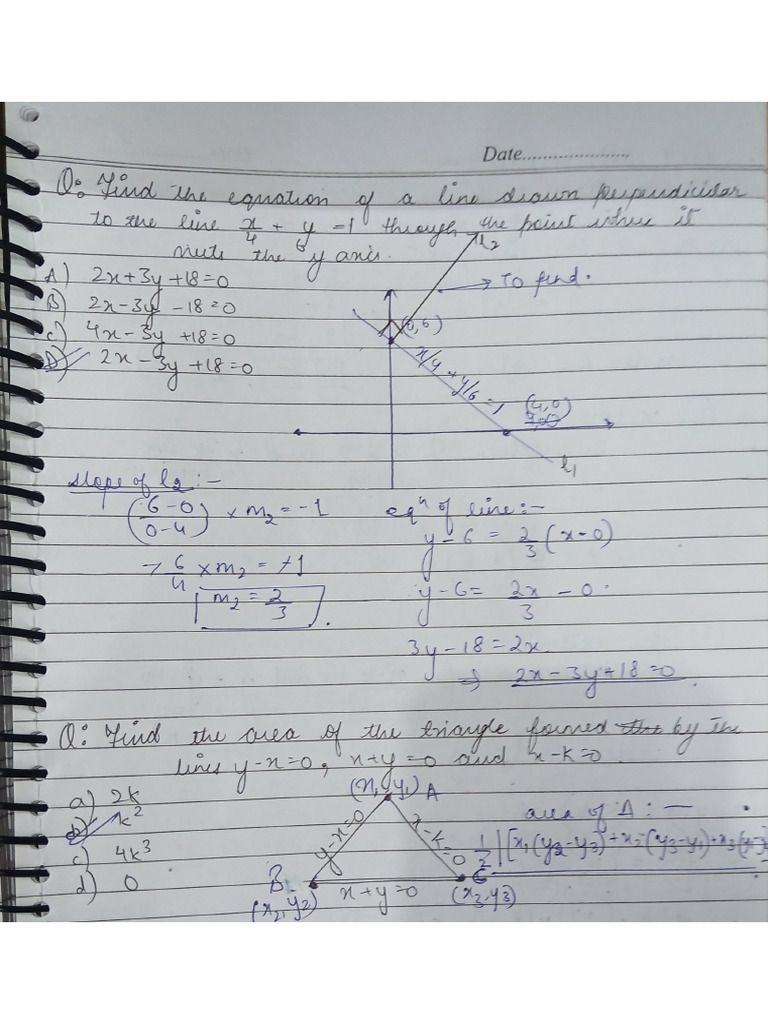 Date......................
Q: Find the equation of a line drawn perpendicular
to the line x/4 + y/6 = 1 through the point where it
meets the y axis.
A) 2x+3y+18=0
B) 2x-3y -18=0
C) 4x-3y +18=0
D) 2x-3y+18=0
l2
→ To find.
(0,6)
x/4 + y/6 = 1
(4,0)
l1
slope of l2 :-
(6-0/0-4) × m2 = -1
→ 6/4 × m2 = +1
m2 = 2/3
eqn of line :-
y-6 = 2/3 (x-0)
y-6 = 2x/3 - 0
3y-18 = 2x
⇒ 2x-3y+18=0
Q: Find the area of the triangle formed by the
lines y-x=0, x+y=0 and x-k=0.
a) 2k
b) k²
c) 4k³
d) 0
(x1, y1) A
y-x=0
x-k=0
B
x+y=0
C
(x2, y2)
(x3, y3)
area of Δ : —
1/2 |[x1(y2-y3)+x2(y3-y1)+x3(y1-